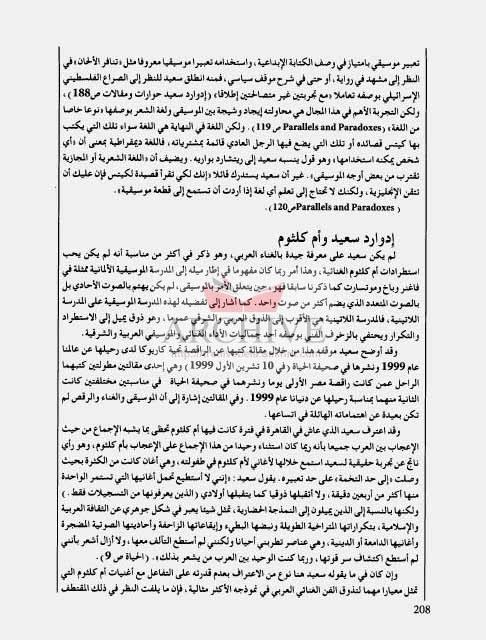 تعبير موسيقي بامتياز في وصف الكتابة الإبداعية، واستخدامه تعبيرا موسيقيا معروفا مثل «تنافر الألحان» في
النظر إلى مشهد في رواية، أو حتى في شرح موقف سياسي، فمنه انطلق سعيد للنظر إلى الصراع الفلسطيني
الإسرائيلي بوصفه تعاملا «مع تجربتين غير متصالحتين إطلاقا» (إدوارد سعيد حوارات ومقالات ص188)،
ولكن التجربة الأهم في هذا المجال هي محاولته إيجاد وشيجة بين الموسيقى ولغة الشعر بوصفها «نوعا خاصا
من اللغة» (Parallels and Paradoxes ص 119). ولكن اللغة في النهاية هي اللغة سواء تلك التي يكتب
بها كيتس قصائده أو تلك التي يضع فيها الرجل العادي قائمة بمشترياته، فاللغة ديمقراطية بمعنى أن «أي
شخص يمكنه استخدامها» وهو قول ينسبه سعيد إلى ريتشارد بواريه. ويضيف أن «اللغة الشعرية أو المجازية
تقترب من بعض أوجه الموسيقى». غير أن سعيد يستدرك قائلا «إنك لكي تقرأ قصيدة لكيتس فإن عليك أن
تتقن الإنجليزية، ولكنك لا تحتاج إلى تعلم أي لغة إذا أردت أن تستمع إلى قطعة موسيقية».
(Parallels and Paradoxes ص120).
إدوارد سعيد وأم كلثوم
لم يكن سعيد على معرفة جيدة بالغناء العربي، وهو ذكر في أكثر من مناسبة أنه لم يكن يحب
استطرادات أم كلثوم الغنائية، وهذا أمر ربما كان مفهوما في إطار ميله إلى المدرسة الموسيقية الألمانية ممثلة في
فاغنر وباخ وموتسارت كما ذكرنا سابقا فهو حين يتعلق الأمر بالموسيقى، لم يكن يهتم بالصوت الأحادي بل
بالصوت المتعدد الذي يضم أكثر من صوت واحد. كما أشار إلى تفضيله لهذه المدرسة الموسيقية على المدرسة
اللاتينية، فالمدرسة اللاتينية هي الأقرب إلى الذوق العربي والشرقي عموما، وهو ذوق يميل إلى الاستطراد
والتكرار ويحتفي بالزخرف الفني بوصفه أحد جماليات الأداء الغنائي والموسيقي العربية والشرقية.
ARCHIVE
وقد أوضح سعيد موقفه هذا من خلال مقالة كتبها عن الراقصة تحية كاريوكا لدى رحيلها عن عالمنا
عام 1999 ونشرها في صحيفة الحياة (في 10 تشرين الأول 1999) وهي إحدى مقالتين مطولتين كتبهما
الراحل عمن كانت راقصة مصر الأولى يوما ونشرهما في صحيفة الحياة في مناسبتين مختلفتين كانت
الثانية منهما بمناسبة رحيلها عن دنيانا عام 1999. وفي المقالتين إشارة إلى أن الموسيقى والغناء والرقص لم
تكن بعيدة عن اهتماماته الهائلة في اتساعها.
وقد اعترف سعيد الذي عاش في القاهرة في فترة كانت فيها أم كلثوم تحظى بما يشبه الإجماع من حيث
الإعجاب بين العرب جميعا بأنه ربما كان استثناء وحيدا من هذا الإجماع على الإعجاب بأم كلثوم، وهو رأي
ناتج عن تجربة حقيقية لسعيد استمع خلالها لأغاني لأم كلثوم في طفولته، وهي أغان كانت من الكثرة بحيث
وصلت «إلى حد التخمة» على حد تعبيره. يقول سعيد: «إنني لا أستطيع تحمل أغانيها التي تستمر الواحدة
منها أكثر من أربعين دقيقة، ولا أتقبلها ذوقيا كما يتقبلها أولادي (الذين يعرفونها من التسجيلات فقط.)
ولكنها بالنسبة إلى الذين يميلون إلى النمذجة الحضارية، تمثل شيئا يعبر في شكل جوهري عن الثقافة العربية
والإسلامية، بتكراراتها المتراخية الطويلة ونبضها البطيء وإيقاعاتها الزاحفة وأحاديتها الصوتية المضجرة
وأغانيها الدامعة أو الدينية، وهي عناصر تطربني أحيانا ولكنني لم أستطع التآلف معها، ولا أزال أشعر بأنني
لم أستطع اكتشاف سر قوتها، وربما كنت الوحيد بين العرب من يشعر بذلك». (الحياة ص 9).
وإن كان في ما يقوله سعيد هنا نوع من الاعتراف بعدم قدرته على التفاعل مع أغنيات أم كلثوم التي
تمثل معيارا مهما لتذوق الفن الغنائي العربي في نموذجه الأكثر مثالية، فإن ما يلفت النظر في ذلك المقتطف
208